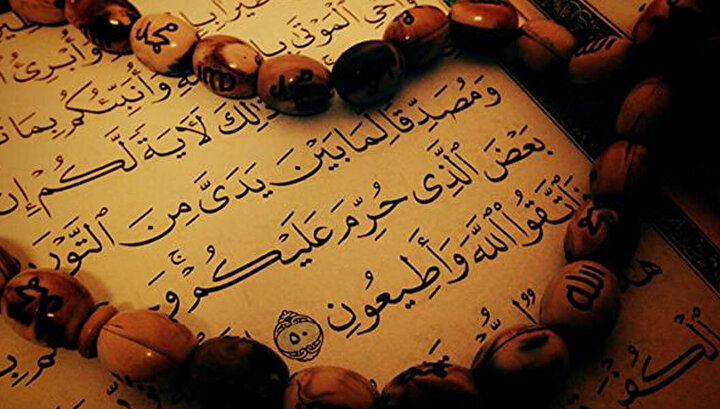 طَيْرًا بِإِ وَأُبْرِئُ
ٱلْمَوْتَىٰ وَأُنَبِّئُكُم بِمَا
ذَٰلِكَ لَآيَةً لَّكُمْ إِن
وَمُصَدِّقًا لِّمَا بَيْنَ يَدَىَّ مِنَ ٱلتَّوْرَ
بَعْضَ ٱلَّذِى حُرِّمَ عَلَيْكُمْ ۚ وَ
فَٱتَّقُوا۟ ٱللَّهَ وَأَطِيعُونِ ٥٠
ٱلْكُفْرَ
محمد
الله